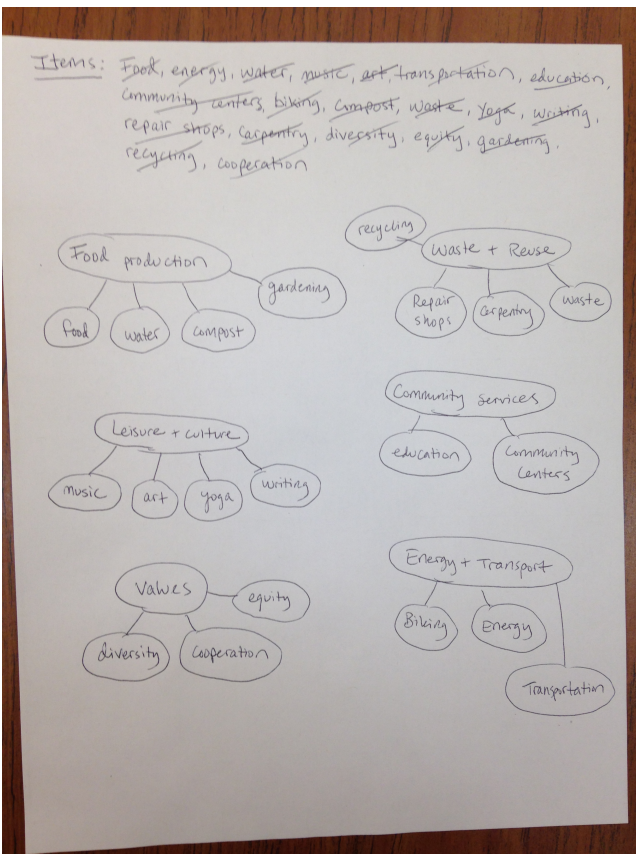 Items: Food, energy, water, music, art, transportation, education,
community centers, biking, compost, waste, yoga, writing,
repair shops, carpentry, diversity, equity, gardening,
recycling, cooperation
Food production
gardening
food
water
compost
recycling
Waste + Reuse
Repair
shops
carpentry
waste
Leisure + culture
music
art
yoga
writing
Community services
education
Community
Centers
Values
equity
diversity
Cooperation
Energy + Transport
Biking
Energy
Transportation